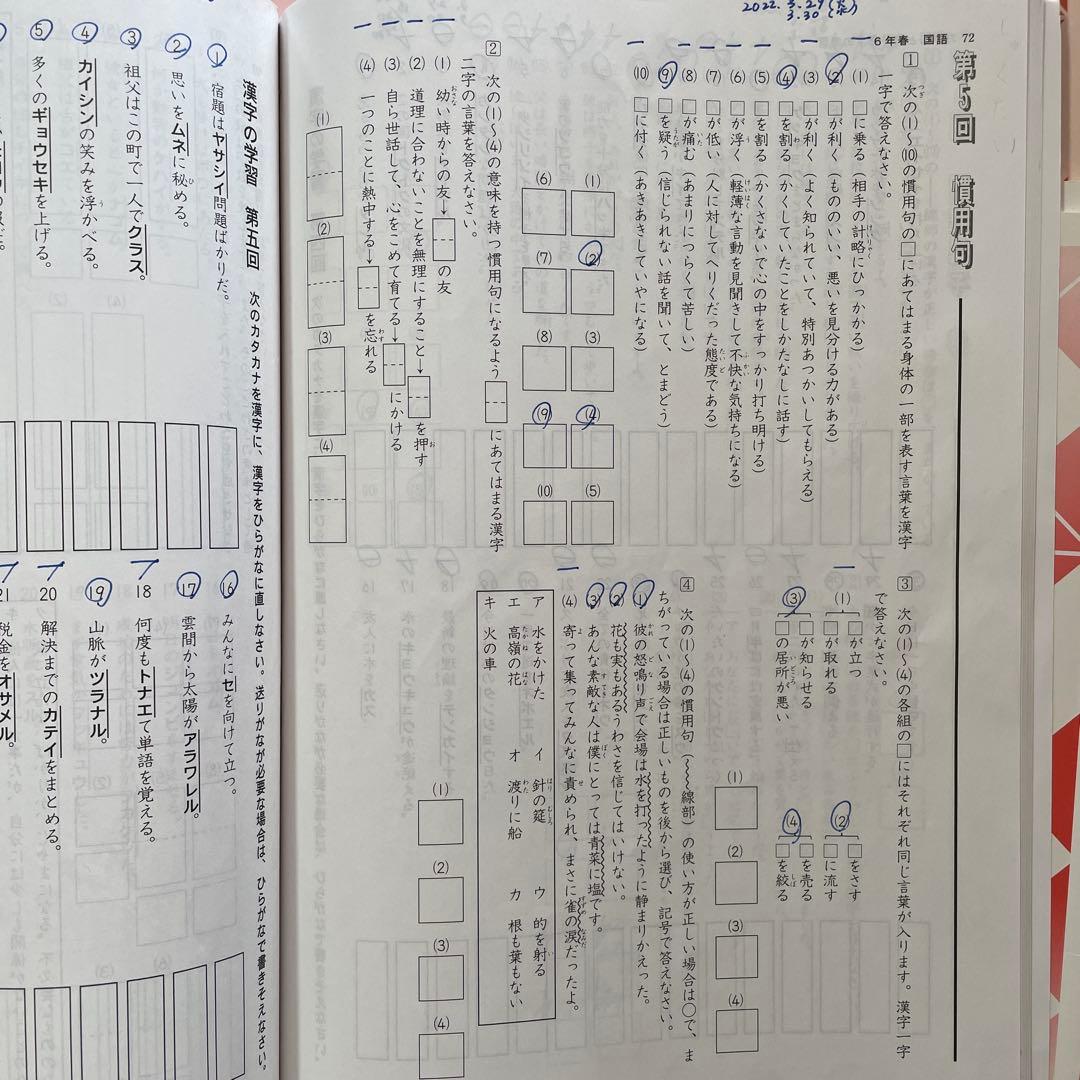 2022. 3. 29 (火)
3. 30 (水)
6年春 国語 72
第5回 慣用句
1 次の(1)〜(10)の慣用句の□にあてはまる身体の一部を表す言葉を漢字
一字で答えなさい。
(1) □に乗る (相手の計略にひっかかる)
(2) □が利く (もののいい、悪いを見分ける力がある)
(3) □が利く (よく知られていて、特別あつかいしてもらえる)
(4) □を割る (かくしていたことをしかたなしに話す)
(5) □を割る (かくさないで心の中をすっかり打ち明ける)
(6) □が浮く (軽薄な言動を見聞きして不快な気持ちになる)
(7) □が低い (人に対してへりくだった態度である)
(8) □が痛む (あまりにつらくて苦しい)
(9) □を疑う (信じられない話を聞いて、とまどう)
(10) □に付く (あきあきしていやになる)
(1)
(2)
(3)
(4)
(5)
(6)
(7)
(8)
(9)
(10)
2 次の(1)〜(4)の意味を持つ慣用句になるよう□□にあてはまる漢字
二字の言葉を答えなさい。
(1) 幼い時からの友→□□の友
(2) 道理に合わないことを無理にすること→□□を押す
(3) 自ら世話して、心をこめて育てる→□□にかける
(4) 一つのことに熱中する→□□を忘れる
(1)
(2)
(3)
(4)
3 次の(1)〜(4)の各組の□にはそれぞれ同じ言葉が入ります。漢字一字
で答えなさい。
(1) □が立つ
□が取れる
(2) □をさす
□に流す
(3) □が知らせる
□の居所が悪い
(4) □を売る
□を絞る
(1)
(2)
(3)
(4)
4 次の(1)〜(4)の慣用句(〜〜線部)の使い方が正しい場合は○で、ま
ちがっている場合は正しいものを後から選び、記号で答えなさい。
(1) 彼の怒鳴り声で会場は水を打ったように静まりかえった。
(2) 花も実もあるうわさを信じてはいけない。
(3) あんな素敵な人は僕にとっては青菜に塩です。
(4) 寄って集ってみんなに責められ、まさに雀の涙だったよ。
ア 水をかけた イ 針の筵 ウ 的を射る
エ 高嶺の花 オ 渡りに船 カ 根も葉もない
キ 火の車
(1)
(2)
(3)
(4)
漢字の学習 第五回 次のカタカナを漢字に、漢字をひらがなに直しなさい。送りがなが必要な場合は、ひらがなで書きそえなさい。
① 宿題はヤサシイ問題ばかりだ。
② 思いをムネに秘める。
③ 祖父はこの町で一人でクラス。
④ カイシンの笑みを浮かべる。
⑤ 多くのギョウセキを上げる。
16 みんなにセを向けて立つ。
17 雲間から太陽がアラワレル。
18 何度もトナエて単語を覚える。
19 山脈がツラナル。
20 解決までのカテイをまとめる。
21 税金をオサメル。